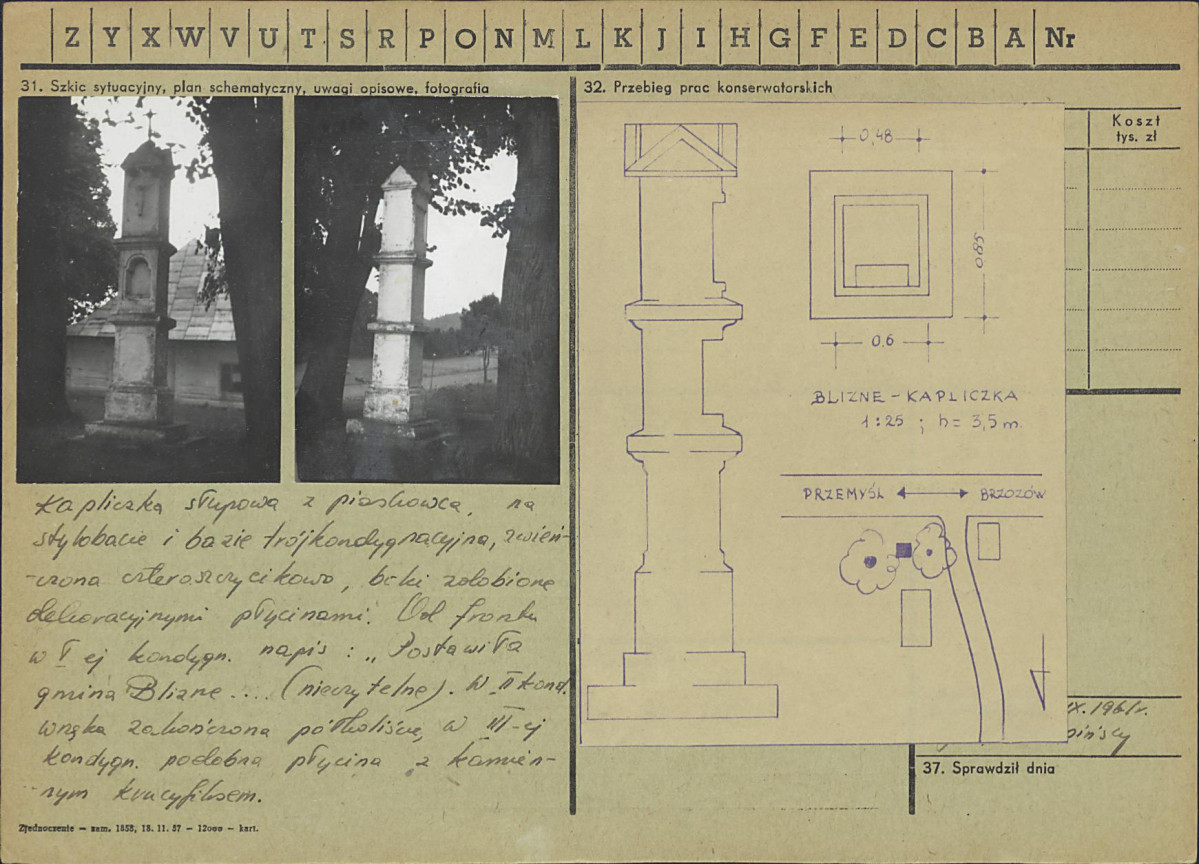 Z Y X W V U T S R P O N M L K J I H G F E D C B A Nr
31. Szkic sytuacyjny, plan schematyczny, uwagi opisowe, fotografia
Kapliczka słupowa z piaskowca, na
stylobacie i bazie trójkondygnacyjna, zwień-
-czona czteroszczycikowo, boki zdobione
dekoracyjnymi płycinami. Od frontu
w I ej kondygn. napis : „Postawiła
gmina Blizne .... (nieczytelne). W II kond.
wnęka zakończona półkoliście, w III-ej
kondygn. podobna płycina z kamien-
nym krucyfiksem.
Zjednoczenie — zam. 1858, 18. 11. 57 — 12000 — kart.
32. Przebieg prac konserwatorskich
Koszt
tys. zł
0,48
0,6
BLIZNE - KAPLICZKA
1:25 ; h = 3,5 m.
PRZEMYŚL BRZOZÓW
IX. 1961r.
37. Sprawdził dnia